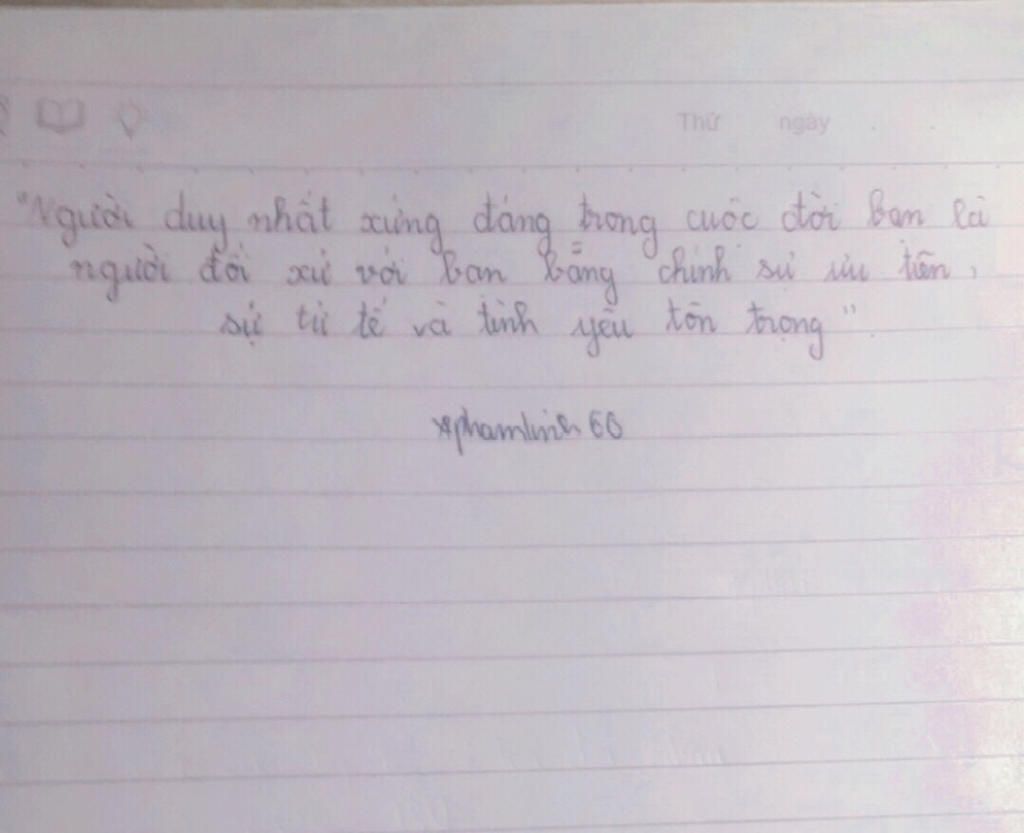 Thứ ngày
"Người duy nhất xứng đáng trong cuộc đời bạn là
người đối xử với bạn bằng chính sự ưu tiên,
sự tử tế và tình yêu tôn trọng"
phamlinh 60